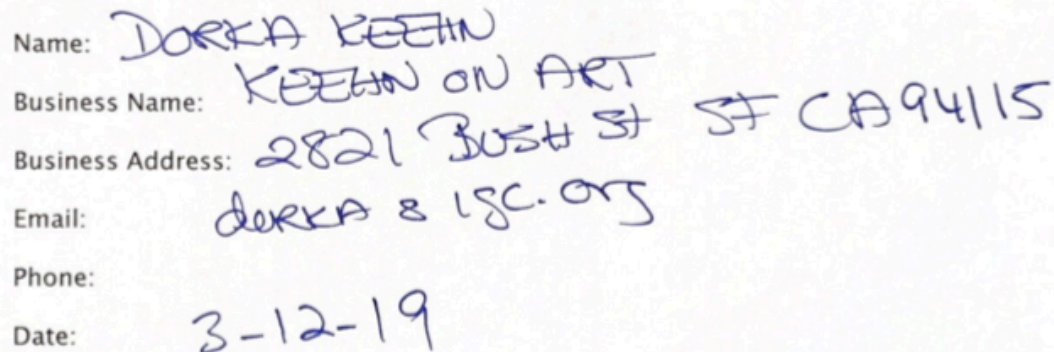 Name: DORKA KEEHN
Business Name: KEEHN ON ART
Business Address: 2821 BUSH St SF CA 94115
Email: dorka @ igc.org
Phone:
Date: 3-12-19